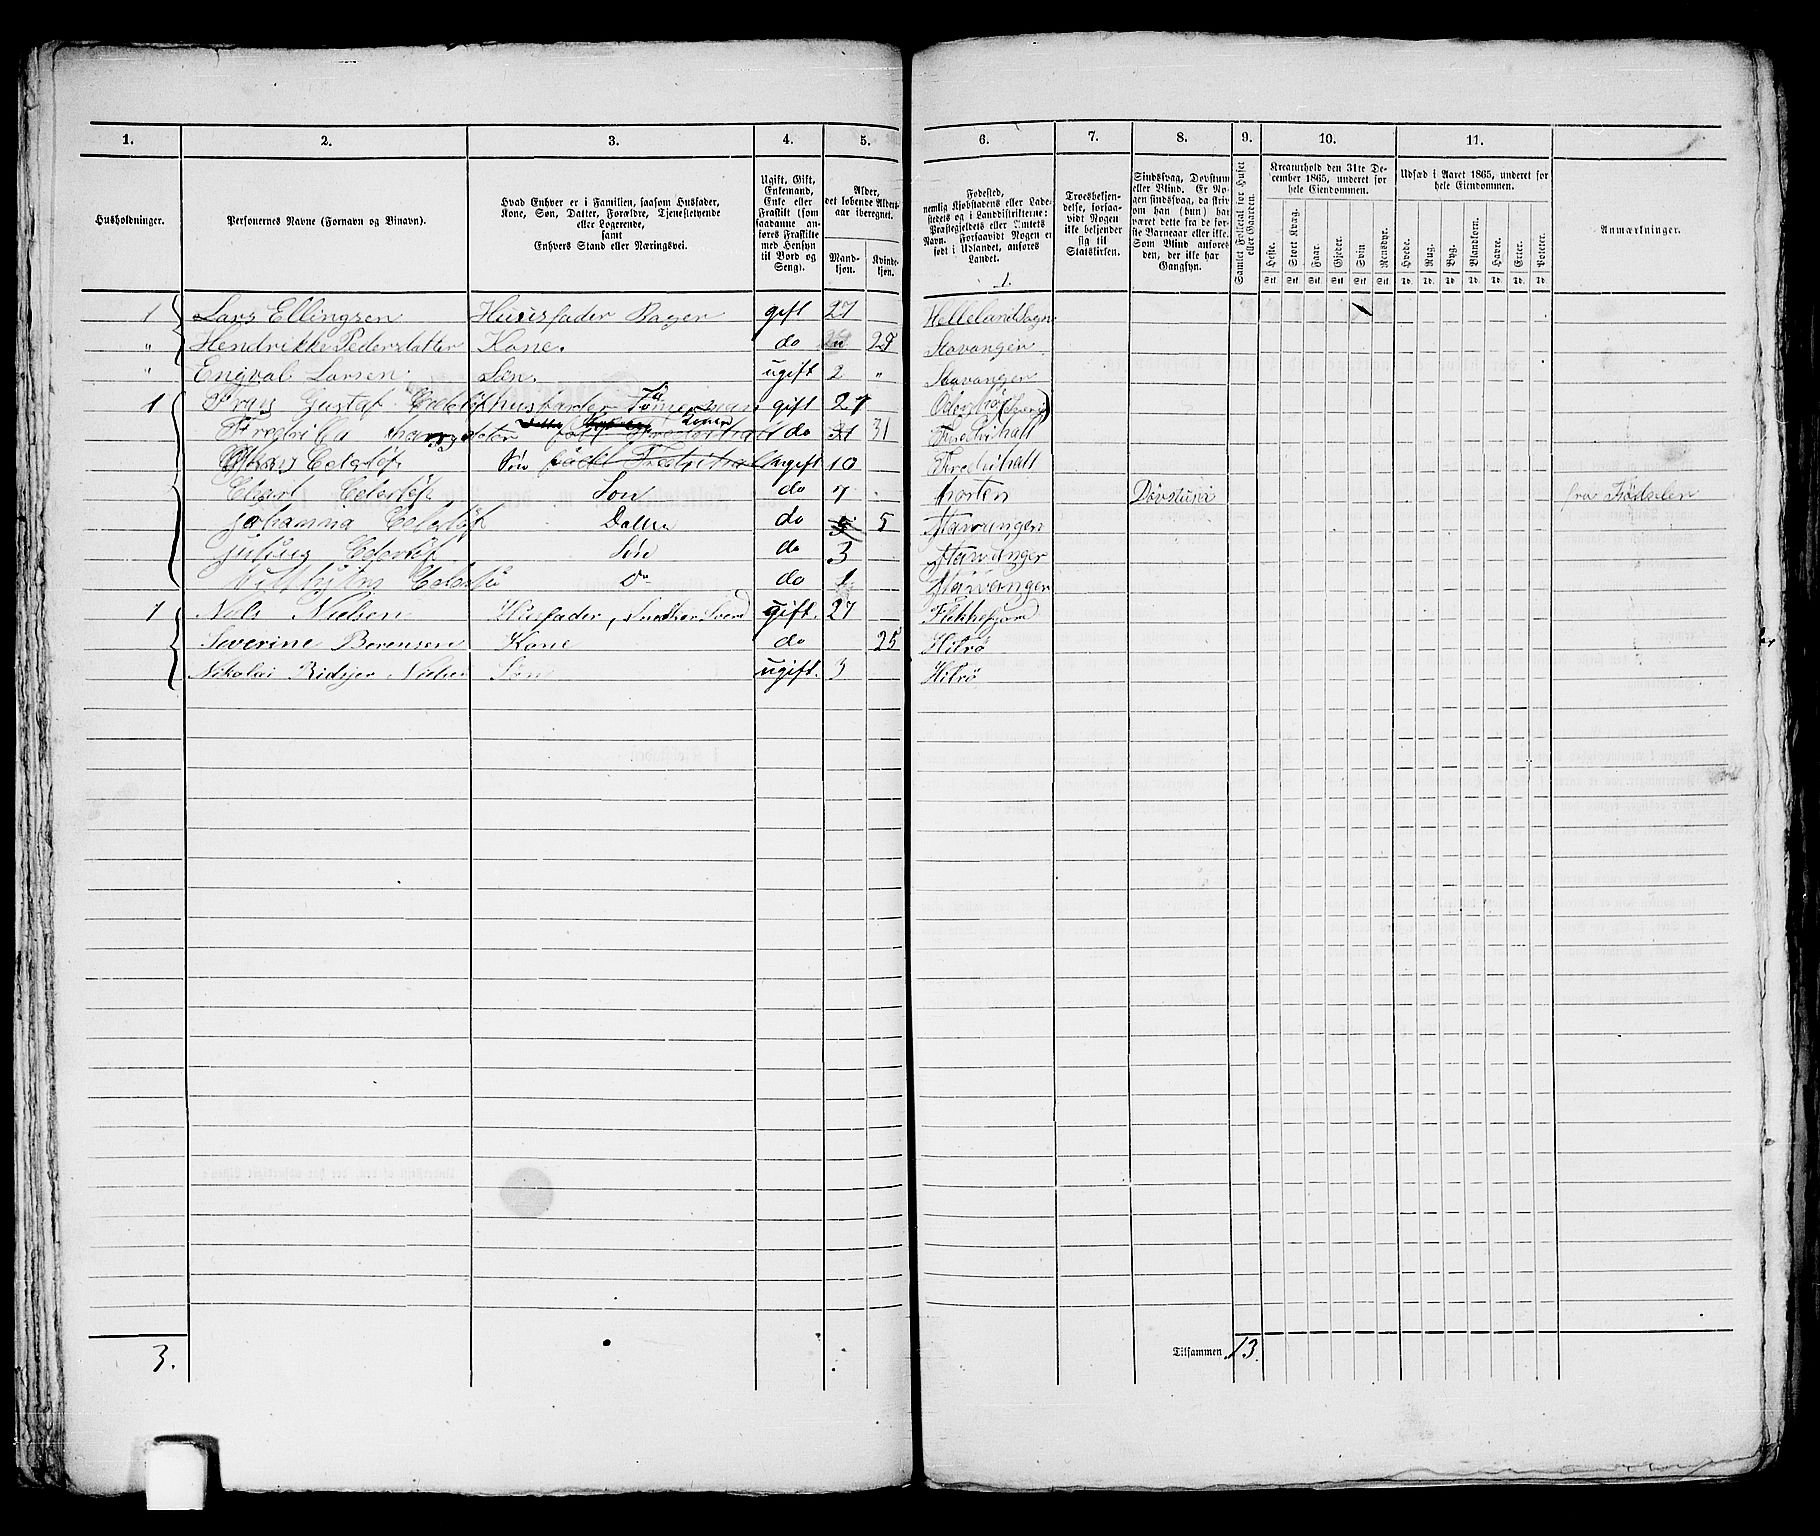 1. 2. 3. 4. 5. 6. 7. 8. 9. 10. 11.
Husholdninger.
Personernes Navne (Fornavn og Binavn).
Hvad Enhver er i Familien, saasom Husfader, Kone, Søn, Datter, Forældre, Tjenestetyende eller Logerende, samt Enhvers Stand eller Næringsvei.
Ugift, Gift, Enkemand, Enke eller Fraskilt (som saadanne anføres Fraskilte med Hensyn til Bord og Seng).
Alder, det løbende Aldersaar iberegnet.
Mandkjøn. Kvindekjøn.
Fødested, nemlig Kjøbstadens eller Ladestedets og i Landdistrikterne: Præstegjeldets eller Amtets Navn. Forsaavidt Nogen er født i Udlandet, anføres Landet.
Troesbekjendelse, forsaavidt Nogen ikke bekjender sig til Statskirken.
Sindssvag, Døvstum eller Blind. Er Nogen sindssvag, da skriv om han (hun) har været dette fra de første Barneaar eller ikke. Som Blind anføres den, der ikke har Gangsyn.
Samlet Folketal for Huset eller Gaarden.
Kreaturhold den 31te December 1865, underet for hele Eiendommen.
Heste. Stort Kvæg. Faar. Gjeder. Svin. Rensdyr.
Stk. Stk. Stk. Stk. Stk. Stk.
Udsæd i Aaret 1865, underet for hele Eiendommen.
Hvede. Rug. Byg. Blandkorn. Havre. Erter. Poteter.
Td. Td. Td. Td. Td. Td. Td.
Anmærkninger.
1.
1 Lars Ellingsen Huusfader Bager gift 27 Hellelandsogn
" Hendrikke Pedersdatter Kone. do 28 Stavanger
" Engval Larsen. Søn. ugift 2 " Stavanger
1 Frans Gustaf husfader gift 27
Konen do 31 31 Fredrihalt
Søn født Fredrihalt ugift 10 Fredrihalt
Søn do 7 horten Døvstum fra Fødselen
johanna Datter do 5 5 Stavanger
julius Søn do 3 Stavanger
Do do 1 Stavanger
1 Nils Nielsen Husfader, Snedker Svend gift. 27 Flekkefjord
Severine Berensen Kone do 25 Hitrø
Nikolai Nielsen Søn ugift. 3 Hitrø
3.
Tilsammen 13.